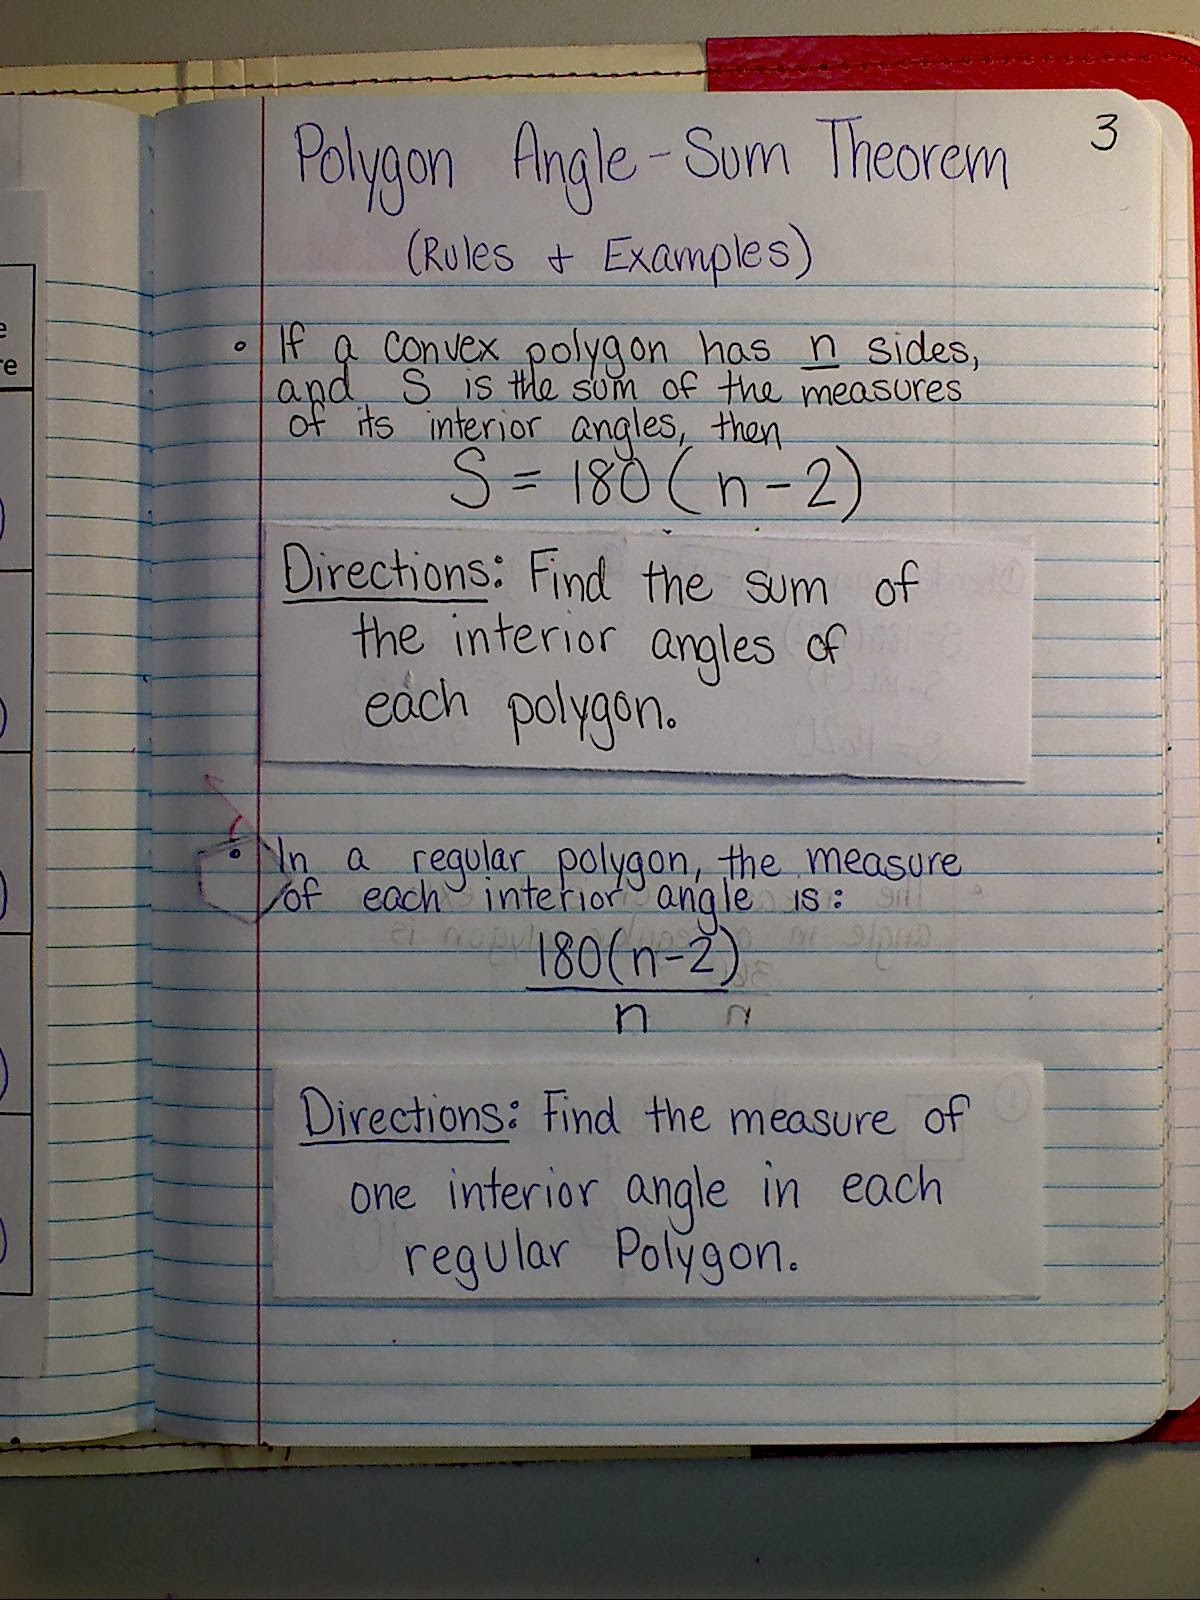 Polygon Angle-Sum Theorem
3
(Rules + Examples)
• If a convex polygon has n sides,
and S is the sum of the measures
of its interior angles, then
S = 180(n-2)
Directions: Find the sum of
the interior angles of
each polygon.
• In a regular polygon, the measure
of each interior angle is:
180(n-2)
n
Directions: Find the measure of
one interior angle in each
regular Polygon.